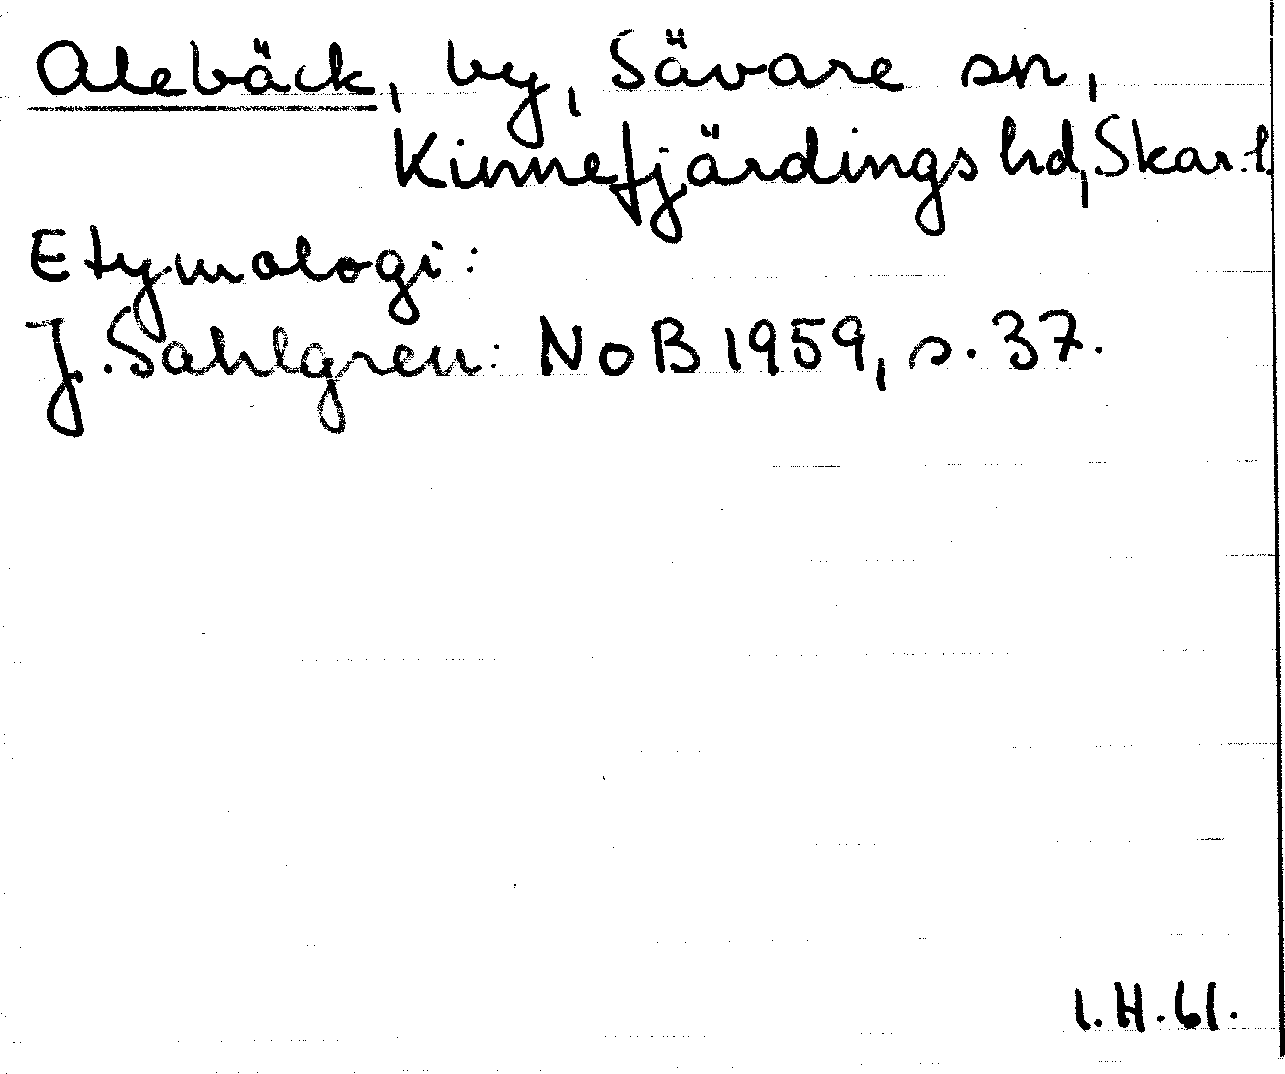 Alebäck, by, Sävare sn,
Kinnefjärdings hd, Skar. l.
Etymologi:
J. Sahlgren: NoB 1959, s. 37.
I.H.61.